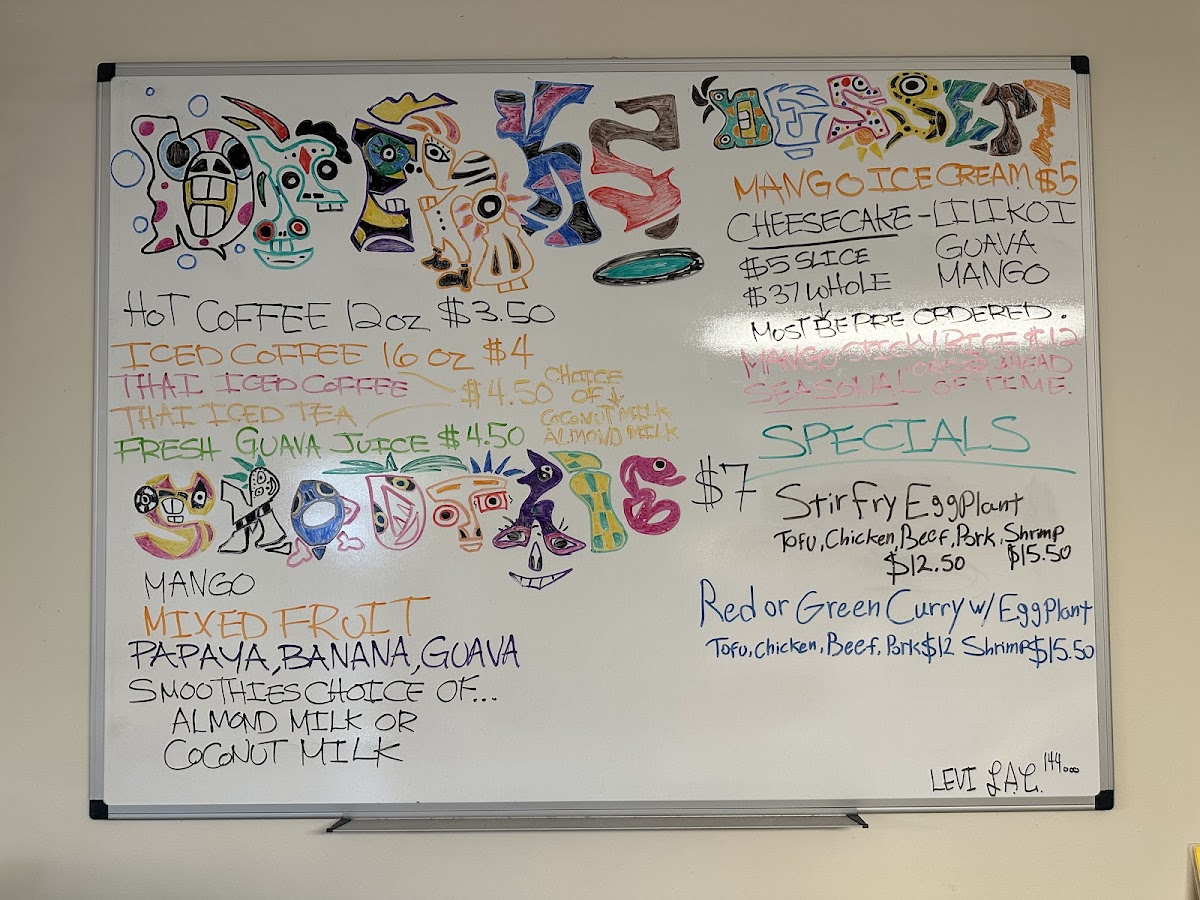 DRINKS
HOT COFFEE 12oz $3.50
ICED COFFEE 16 oz $4
THAI ICED COFFEE
THAI ICED TEA
$4.50 CHOICE
OF
COCONUT MILK
ALMOND MILK
FRESH GUAVA JUICE $4.50
SMOOTHIE $7
MANGO
MIXED FRUIT
PAPAYA, BANANA, GUAVA
SMOOTHIES CHOICE OF...
ALMOND MILK OR
COCONUT MILK
DESSERT
MANGO ICE CREAM $5
CHEESECAKE - LILIKOI
GUAVA
MANGO
$5 SLICE
$37 WHOLE
MOST BE PRE ORDERED.
MANGO STICKY RICE $12
SEASONAL
ORDER AHEAD
OF TIME.
SPECIALS
Stir Fry EggPlant
Tofu, Chicken, Beef, Pork, Shrimp
$12.50 $15.50
Red or Green Curry w/ EggPlant
Tofu, Chicken, Beef, Pork $12 Shrimp $15.50
LEVI L.A.C. 144...